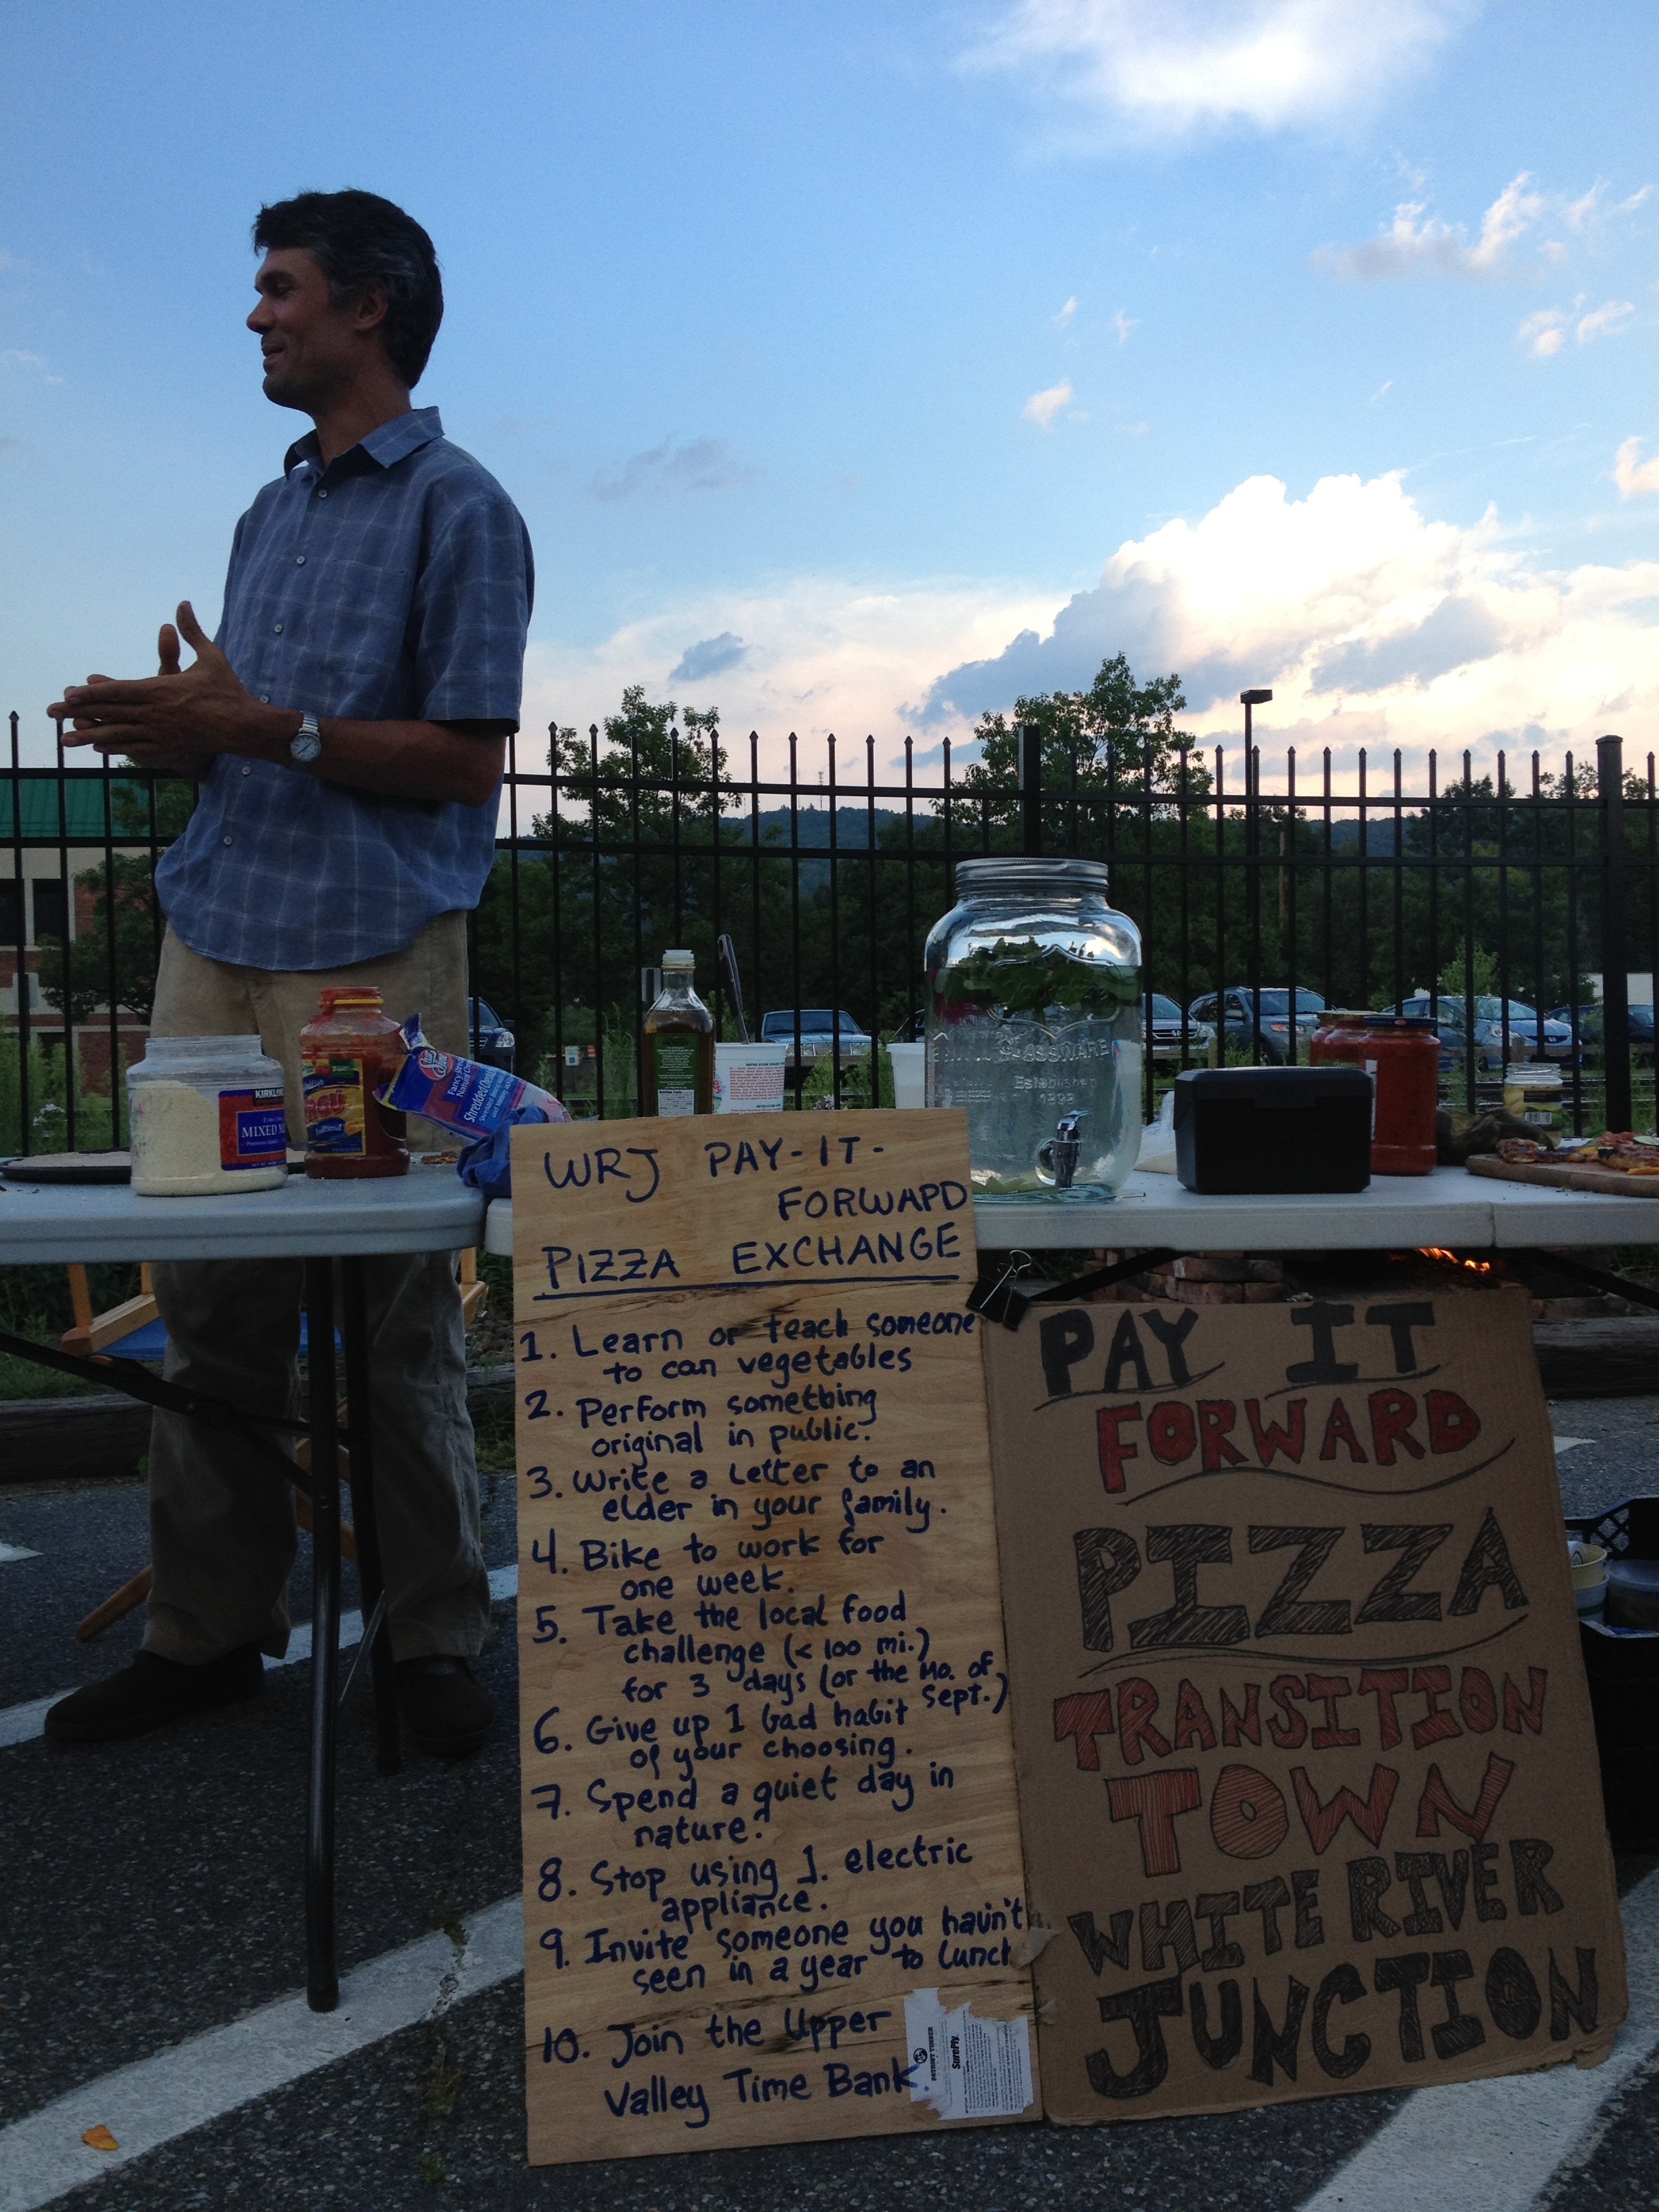 WRJ PAY-IT-
FORWARD
PIZZA EXCHANGE
1. Learn or teach someone
to can vegetables
2. Perform something
original in public.
3. Write a letter to an
elder in your family.
4. Bike to work for
one week.
5. Take the local food
challenge (< 100 mi.)
for 3 days (or the Mo. of
Sept.)
6. Give up 1 bad habit
of your choosing.
7. Spend a quiet day in
nature.
8. Stop using 1. electric
appliance.
9. Invite someone you havin't
seen in a year to lunch
10. Join the Upper
Valley Time Bank.
SurePly
PAY IT
FORWARD
PIZZA
TRANSITION
TOWN
WHITE RIVER
JUNCTION
KIRKLAND
MIXED
Shredded
Established